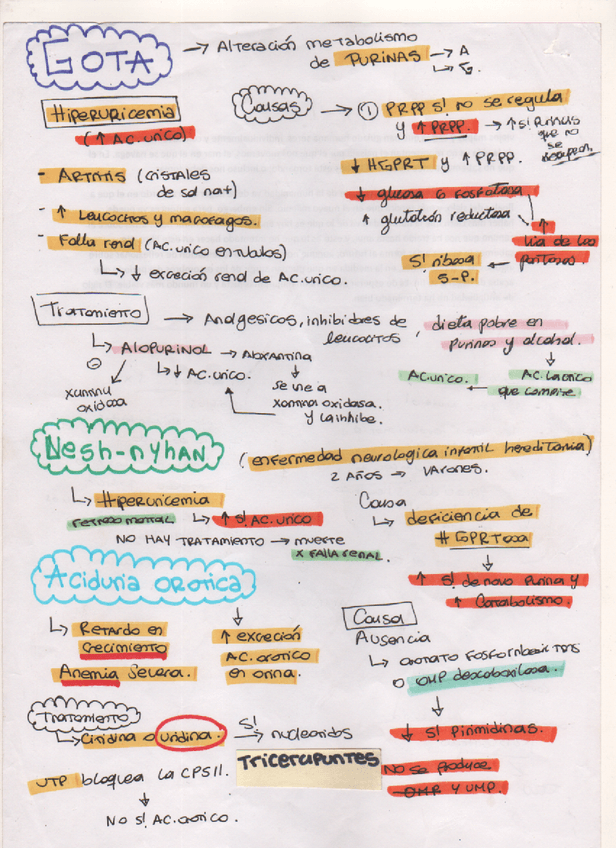 GOTA → Alteración metabolismo
de PURINAS → A
↳ G.
Hiperuricemia
(↑ Ac. urico)
Causas → ① PRPP s! no se regula
y ↑ PRPP. → ↑ s! purinas
que no
se
↓ HGPRT y ↑ PRPP.
- Artritis (cristales
de sal na+)
- ↑ Leucocitos y macrofagos.
- Falla renal (Ac. urico en tubulos)
↳ ↓ excreción renal de Ac. urico.
↓ glucosa 6 fosfatasa
↑ glutatión reductasa
↑
via de las
pentosas.
S! ribosa
5-P.
Tratamiento → Analgesicos, inhibidores de
leucocitos, dieta pobre en
purinas y alcohol.
↳ Alopurinol → Aloxantina
⊖
xantina
oxidasa
↳ ↓ Ac. urico.
se une a
xantina oxidasa.
y la inhibe.
Ac. urico.
Ac. lactico
que compite
Nesh-nyhan (enfermedad neurologica infantil hereditaria)
2 años → varones.
↳ Hiperuricemia
retraso mental
↳ ↑ s! Ac. urico
NO HAY TRATAMIENTO → muerte
x Falla renal.
Causa
↳ deficiencia de
HGPRTasa
↓
↑ s! de novo purina y
↑ Catabolismo.
Aciduria orotica
↳ Retardo en
crecimiento
Anemia severa.
↓
↑ excreción
Ac. orotico
en orina.
Causa
Ausencia
↳ orotato
o OMP descarboxilasa.
↓
↓ s! pirimidinas.
No se produce
OMP y UMP.
Tratamiento
↳ Citidina o uridina. S! → nucleotidos
Tricerapuntes
UTP bloquea la CPSII.
↓
NO s! Ac. orotico.